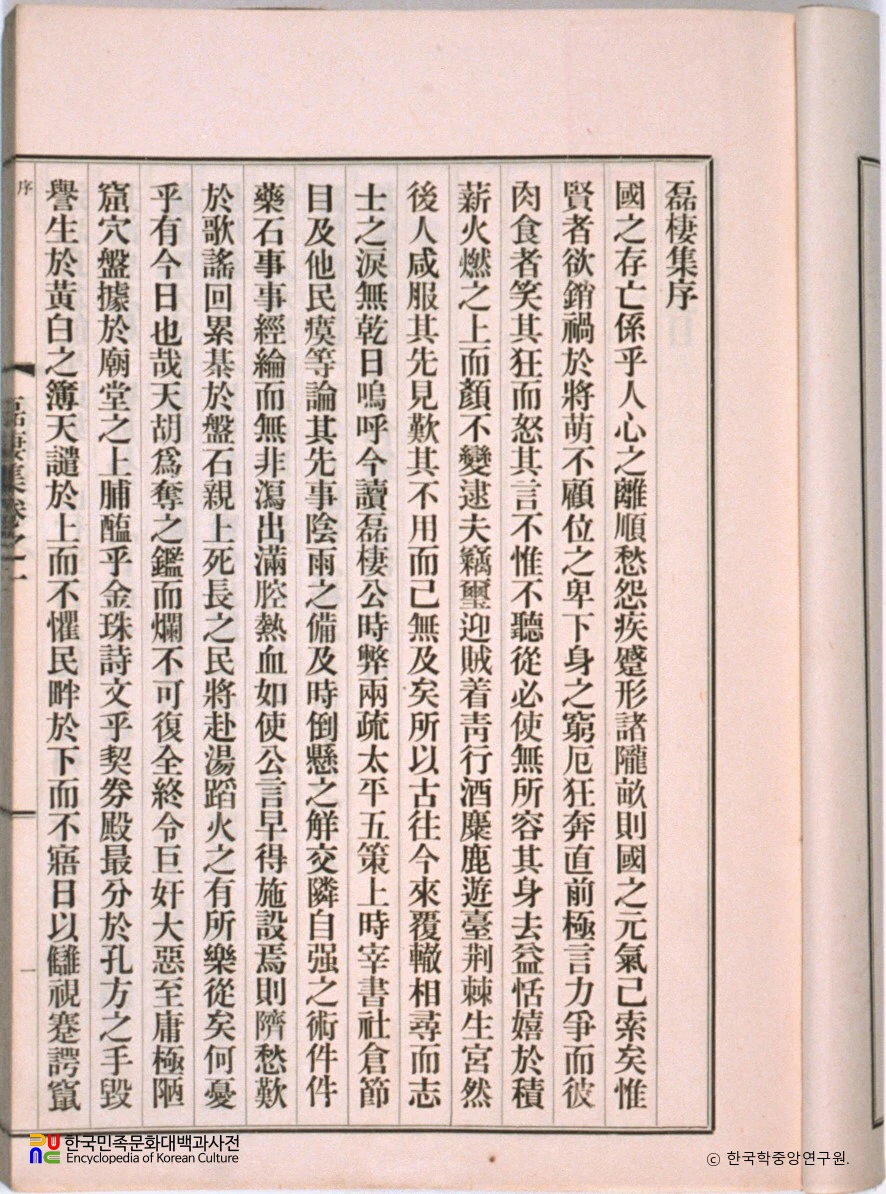 磊棲集序
國之存亡係乎人心之離順愁怨疾蹙形諸隴畝則國之元氣已索矣惟
賢者欲銷禍於將萌不顧位之卑下身之窮厄狂奔直前極言力爭而彼
肉食者笑其狂而怒其言不惟不聽從必使無所容其身去益恬嬉於積
薪火燃之上而顏不變逮夫竊璽迎賊着靑行酒麋鹿遊臺荆棘生宮然
後人咸服其先見歎其不用而已無及矣所以古往今來覆轍相尋而志
士之淚無乾日嗚呼今讀磊棲公時弊兩疏太平五策上時宰書社倉節
目及他民瘼等論其先事陰雨之備及時倒懸之觧交隣自强之術件件
藥石事事經綸而無非瀉出滿腔熱血如使公言早得施設焉則隮愁歎
於歌謠回累棊於盤石親上死長之民將赴湯蹈火之有所樂從矣何憂
乎有今日也哉天胡爲奪之鑑而爛不可復全終令巨奸大惡至庸極陋
窟穴盤據於廟堂之上脯醢乎金珠詩文乎契券殿最分於孔方之手毀
譽生於黃白之簿天譴於上而不懼民畔於下而不寤日以讎視蹇諤竄
序
磊棲集卷之一
一
한국민족문화대백과사전
Encyclopedia of Korean Culture
ⓒ 한국학중앙연구원.